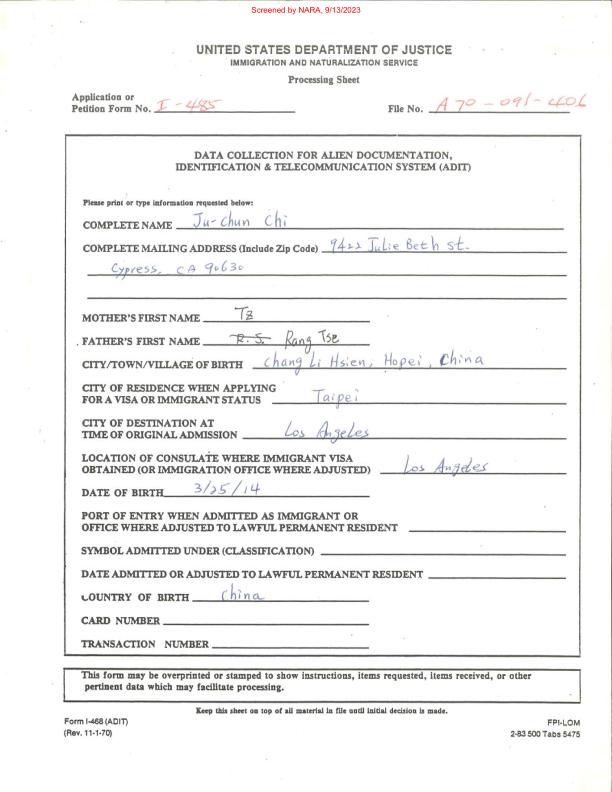 Screened by NARA, 9/13/2023
UNITED STATES DEPARTMENT OF JUSTICE
IMMIGRATION AND NATURALIZATION SERVICE
Processing Sheet
Application or
Petition Form No. I-485 File No. A 70-091-406
DATA COLLECTION FOR ALIEN DOCUMENTATION,
IDENTIFICATION & TELECOMMUNICATION SYSTEM (ADIT)
Please print or type information requested below:
COMPLETE NAME Ju-Chun Chi
COMPLETE MAILING ADDRESS (Include Zip Code) 9422 Julie Beth St.
Cypress, CA 90630
MOTHER'S FIRST NAME Tz
FATHER'S FIRST NAME R.S. Rang Tse
CITY/TOWN/VILLAGE OF BIRTH Chang Li Hsien, Hopei, China
CITY OF RESIDENCE WHEN APPLYING
FOR A VISA OR IMMIGRANT STATUS Taipei
CITY OF DESTINATION AT
TIME OF ORIGINAL ADMISSION Los Angeles
LOCATION OF CONSULATE WHERE IMMIGRANT VISA
OBTAINED (OR IMMIGRATION OFFICE WHERE ADJUSTED) Los Angeles
DATE OF BIRTH 3/25/14
PORT OF ENTRY WHEN ADMITTED AS IMMIGRANT OR
OFFICE WHERE ADJUSTED TO LAWFUL PERMANENT RESIDENT
SYMBOL ADMITTED UNDER (CLASSIFICATION)
DATE ADMITTED OR ADJUSTED TO LAWFUL PERMANENT RESIDENT
COUNTRY OF BIRTH China
CARD NUMBER
TRANSACTION NUMBER
This form may be overprinted or stamped to show instructions, items requested, items received, or other
pertinent data which may facilitate processing.
Keep this sheet on top of all material in file until initial decision is made.
Form I-468 (ADIT) FPI-LOM
(Rev. 11-1-70) 2-83 500 Tabs 5475